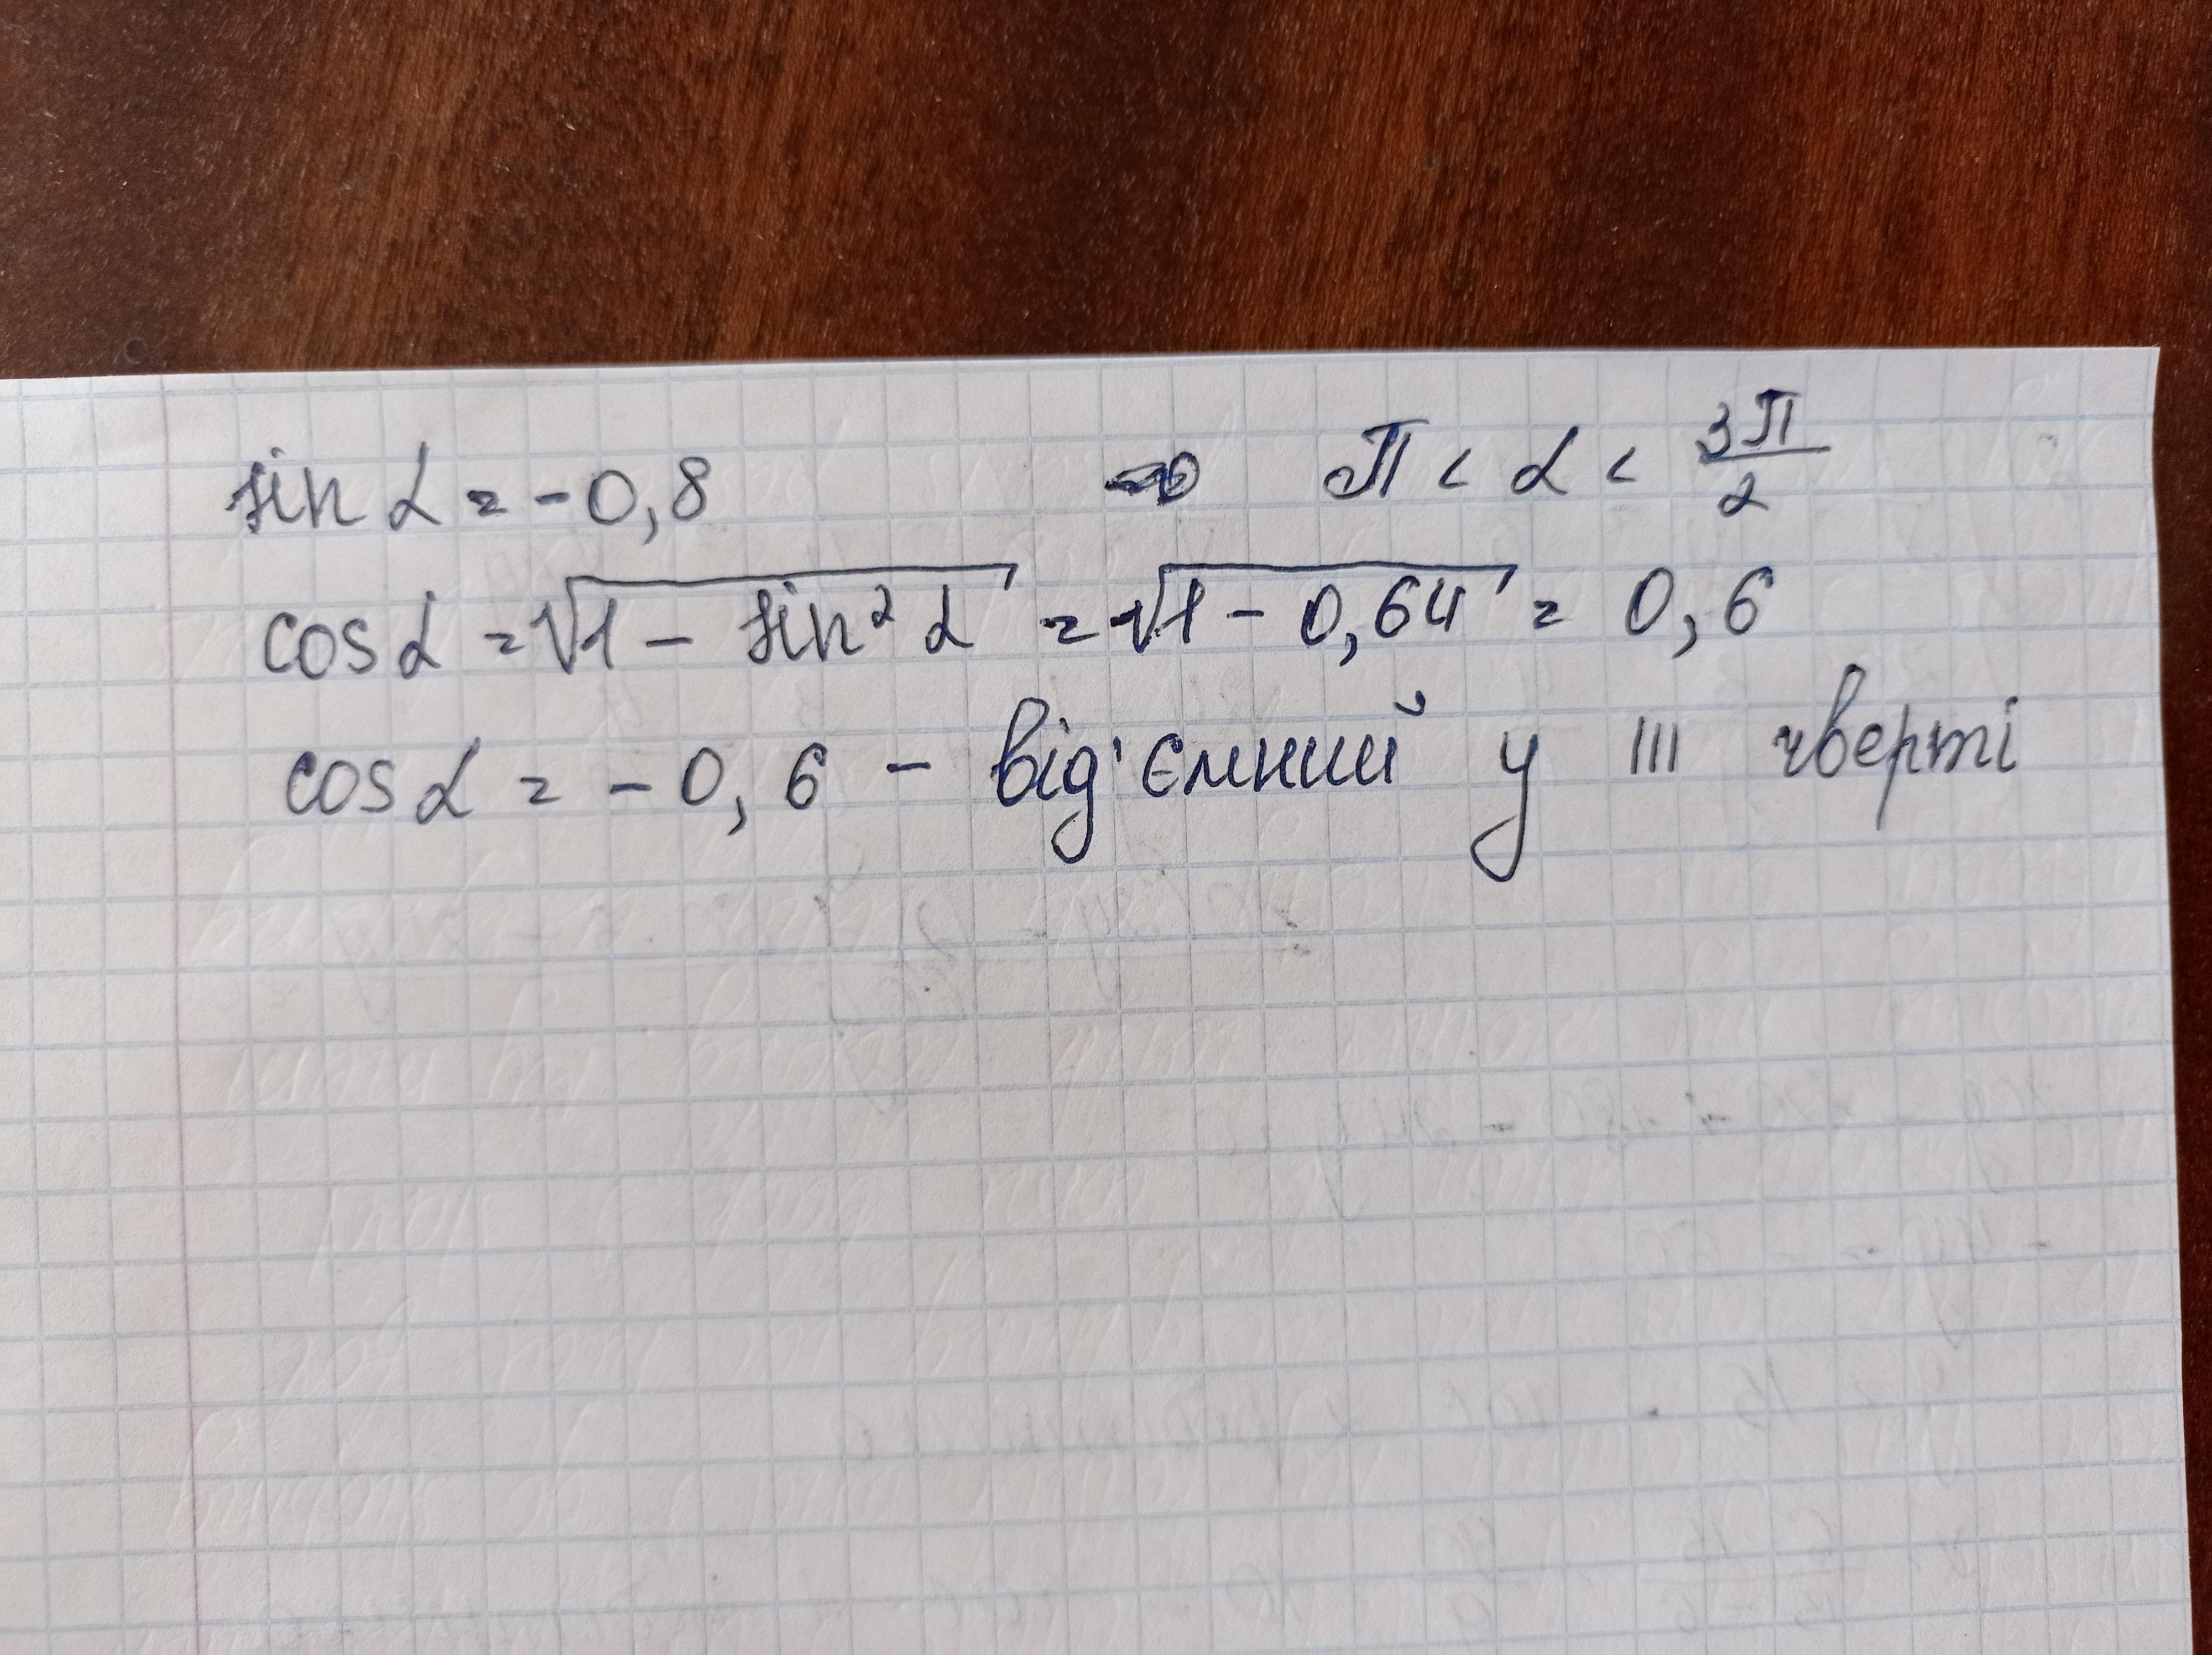 sin α = -0,8 π < α < 3π/2
cos α = √1 - sin² α = √1 - 0,64 = 0,6
cos α = -0,6 - від'ємний у III чверті